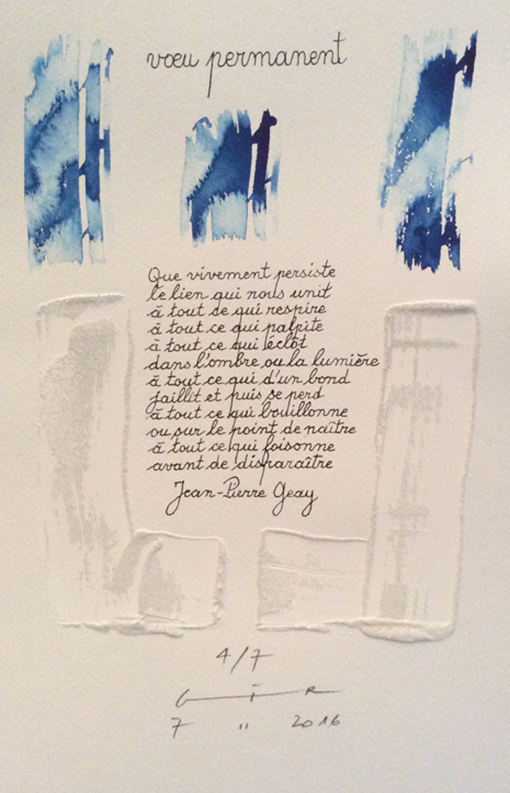 vœu permanent
Que vivement persiste
le lien qui nous unit
à tout ce qui respire
à tout ce qui palpite
à tout ce qui éclot
dans l'ombre ou la lumière
à tout ce qui d'un bond
jaillit et puis se perd
à tout ce qui bouillonne
ou sur le point de naître
à tout ce qui foisonne
avant de disparaître
Jean-Pierre Geay
4/7
7 " 2016